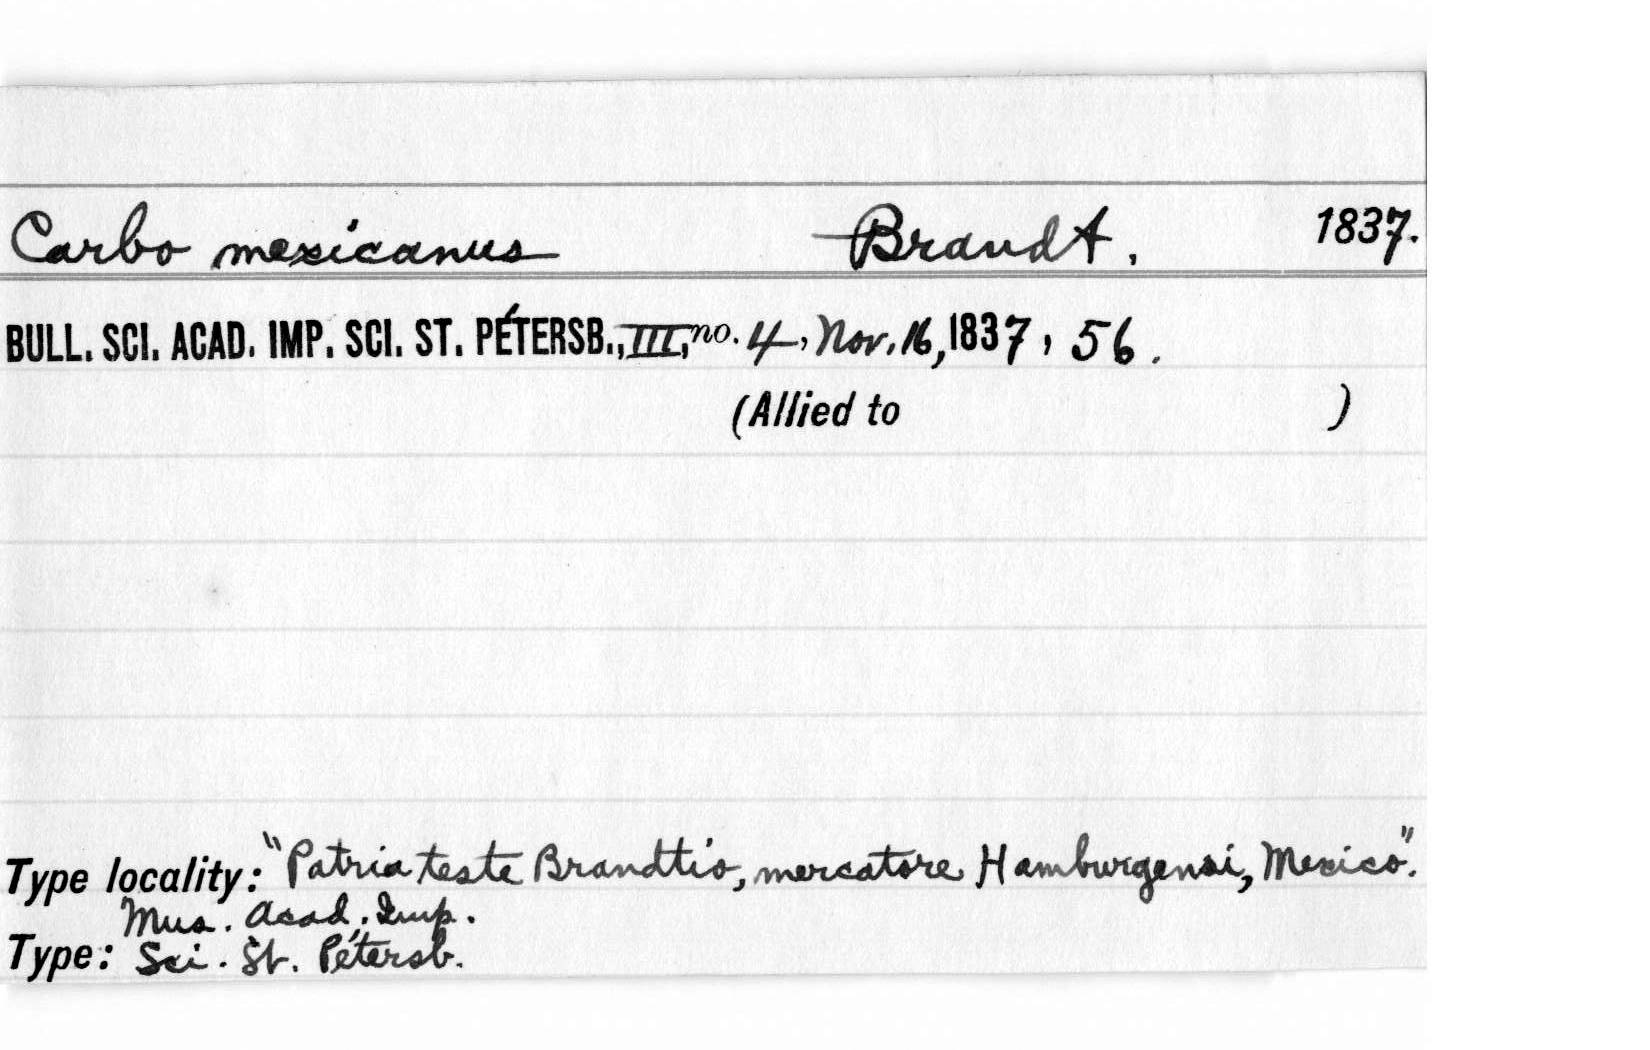 Carbo mexicanus Brandt, 1837.
BULL. SCI. ACAD. IMP. SCI. ST. PÉTERSB., III, no. 4, Nov. 16, 1837, 56.
(Allied to )
Type locality: "Patria teste Brandtio, mercatore Hamburgensi, Mexico".
Mus. Acad. Imp.
Type: Sci. St. Pétersb.